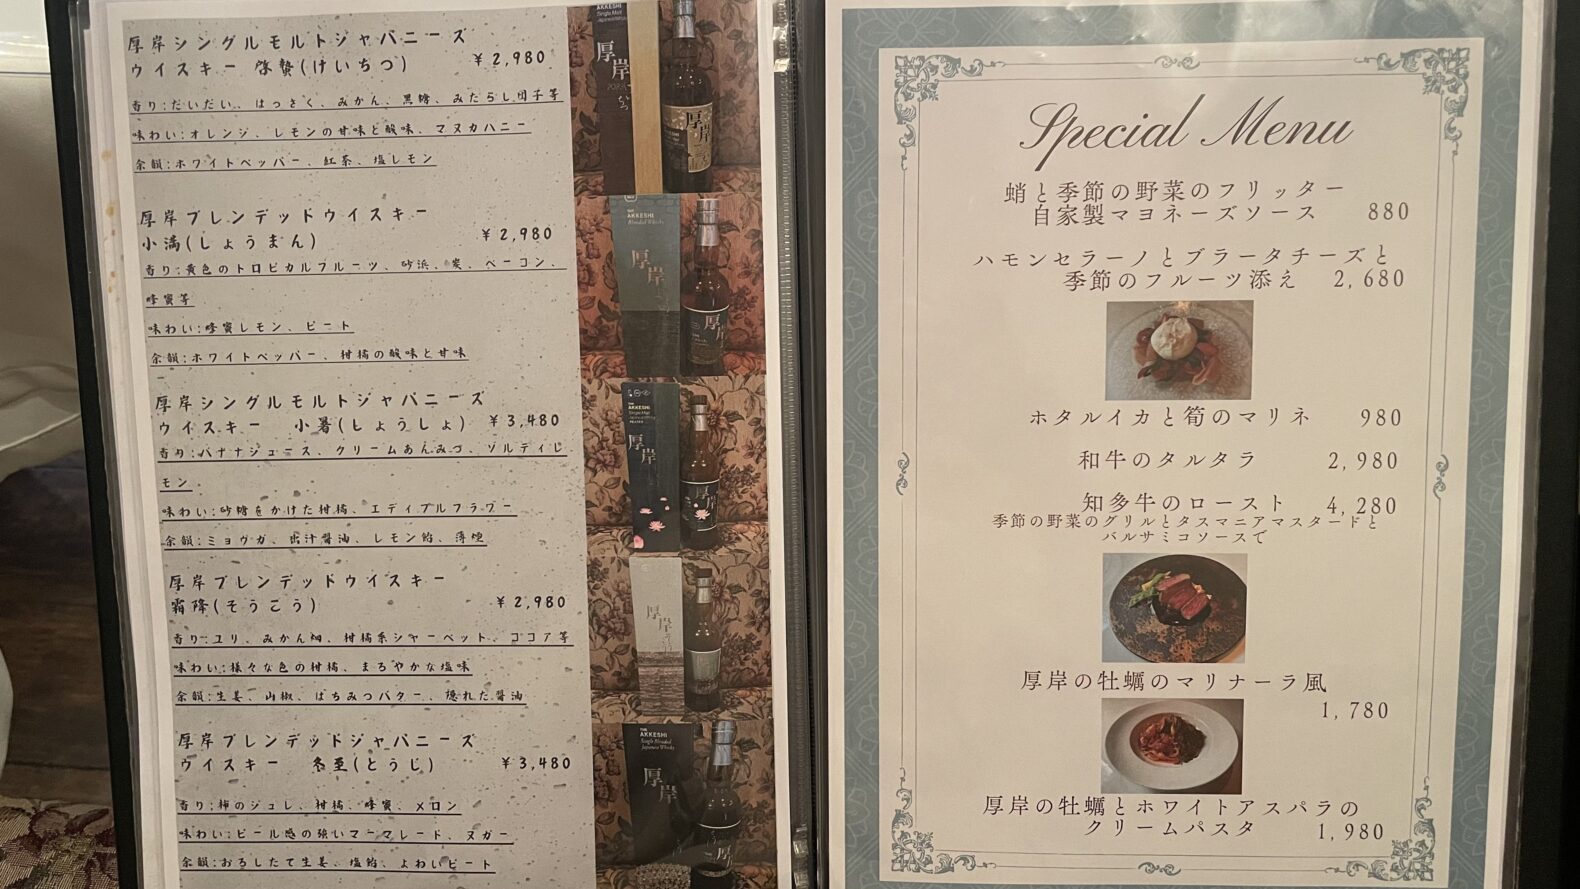 厚岸シングルモルトジャパニーズ
ウイスキー 啓蟄(けいちつ) ¥2,980
香り:だいだい、はっさく、みかん、黒糖、みたらし団子等
味わい:オレンジ、レモンの甘味と酸味、マヌカハニー
余韻:ホワイトペッパー、紅茶、塩レモン
厚岸ブレンデッドウイスキー
小満(しょうまん) ¥2,980
香り:黄色のトロピカルフルーツ、砂浜、炭、ベーコン、
蜂蜜等
味わい:蜂蜜レモン、ピート
余韻:ホワイトペッパー、柑橘の酸味と甘味
厚岸シングルモルトジャパニーズ
ウイスキー 小暑(しょうしょ) ¥3,480
香り:バナナジュース、クリームあんみつ、ソルティレ
モン
味わい:砂糖をかけた柑橘、エディブルフラワー
余韻:ミョウガ、出汁醤油、レモン飴、薄煙
厚岸ブレンデッドウイスキー
霜降(そうこう) ¥2,980
香り:ユリ、みかん畑、柑橘系シャーベット、ココア等
味わい:様々な色の柑橘、まろやかな塩味
余韻:生姜、山椒、はちみつバター、隠れた醤油
厚岸ブレンデッドジャパニーズ
ウイスキー 冬至(とうじ) ¥3,480
香り:柿のジュレ、柑橘、蜂蜜、メロン
味わい:ピール感の強いマーマレード、ヌガー
余韻:おろしたて生姜、塩飴、よわいピート
厚岸
厚岸
AKKESHI
厚岸
厚岸
AKKESHI
厚岸
厚岸
厚岸
AKKESHI
厚岸
厚岸
Special Menu
蛸と季節の野菜のフリッター
自家製マヨネーズソース 880
ハモンセラーノとブラータチーズと
季節のフルーツ添え 2,680
ホタルイカと筍のマリネ 980
和牛のタルタラ 2,980
知多牛のロースト 4,280
季節の野菜のグリルとタスマニアマスタードと
バルサミコソースで
厚岸の牡蠣のマリナーラ風
1,780
厚岸の牡蠣とホワイトアスパラの
クリームパスタ 1,980